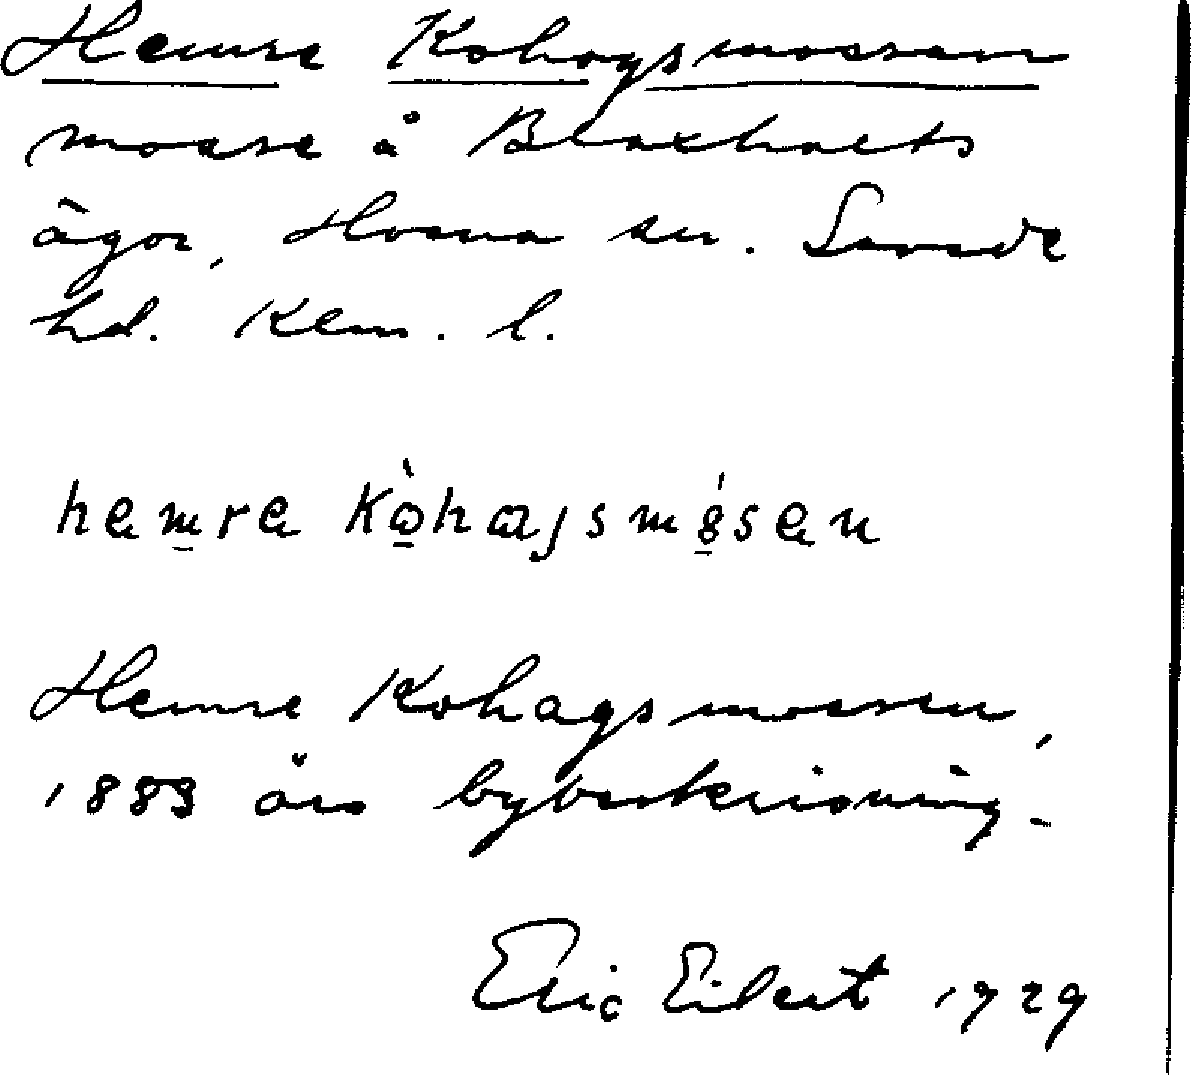 Hemre Kohagsmossen
mosse å Blaxhults
ägor, Horna sn.
hd. Kron. l.
hemre kòhagsmósen
Hemre Kohagsmossen,
1883 års bybeskrivning.
Eric Eilert 1929